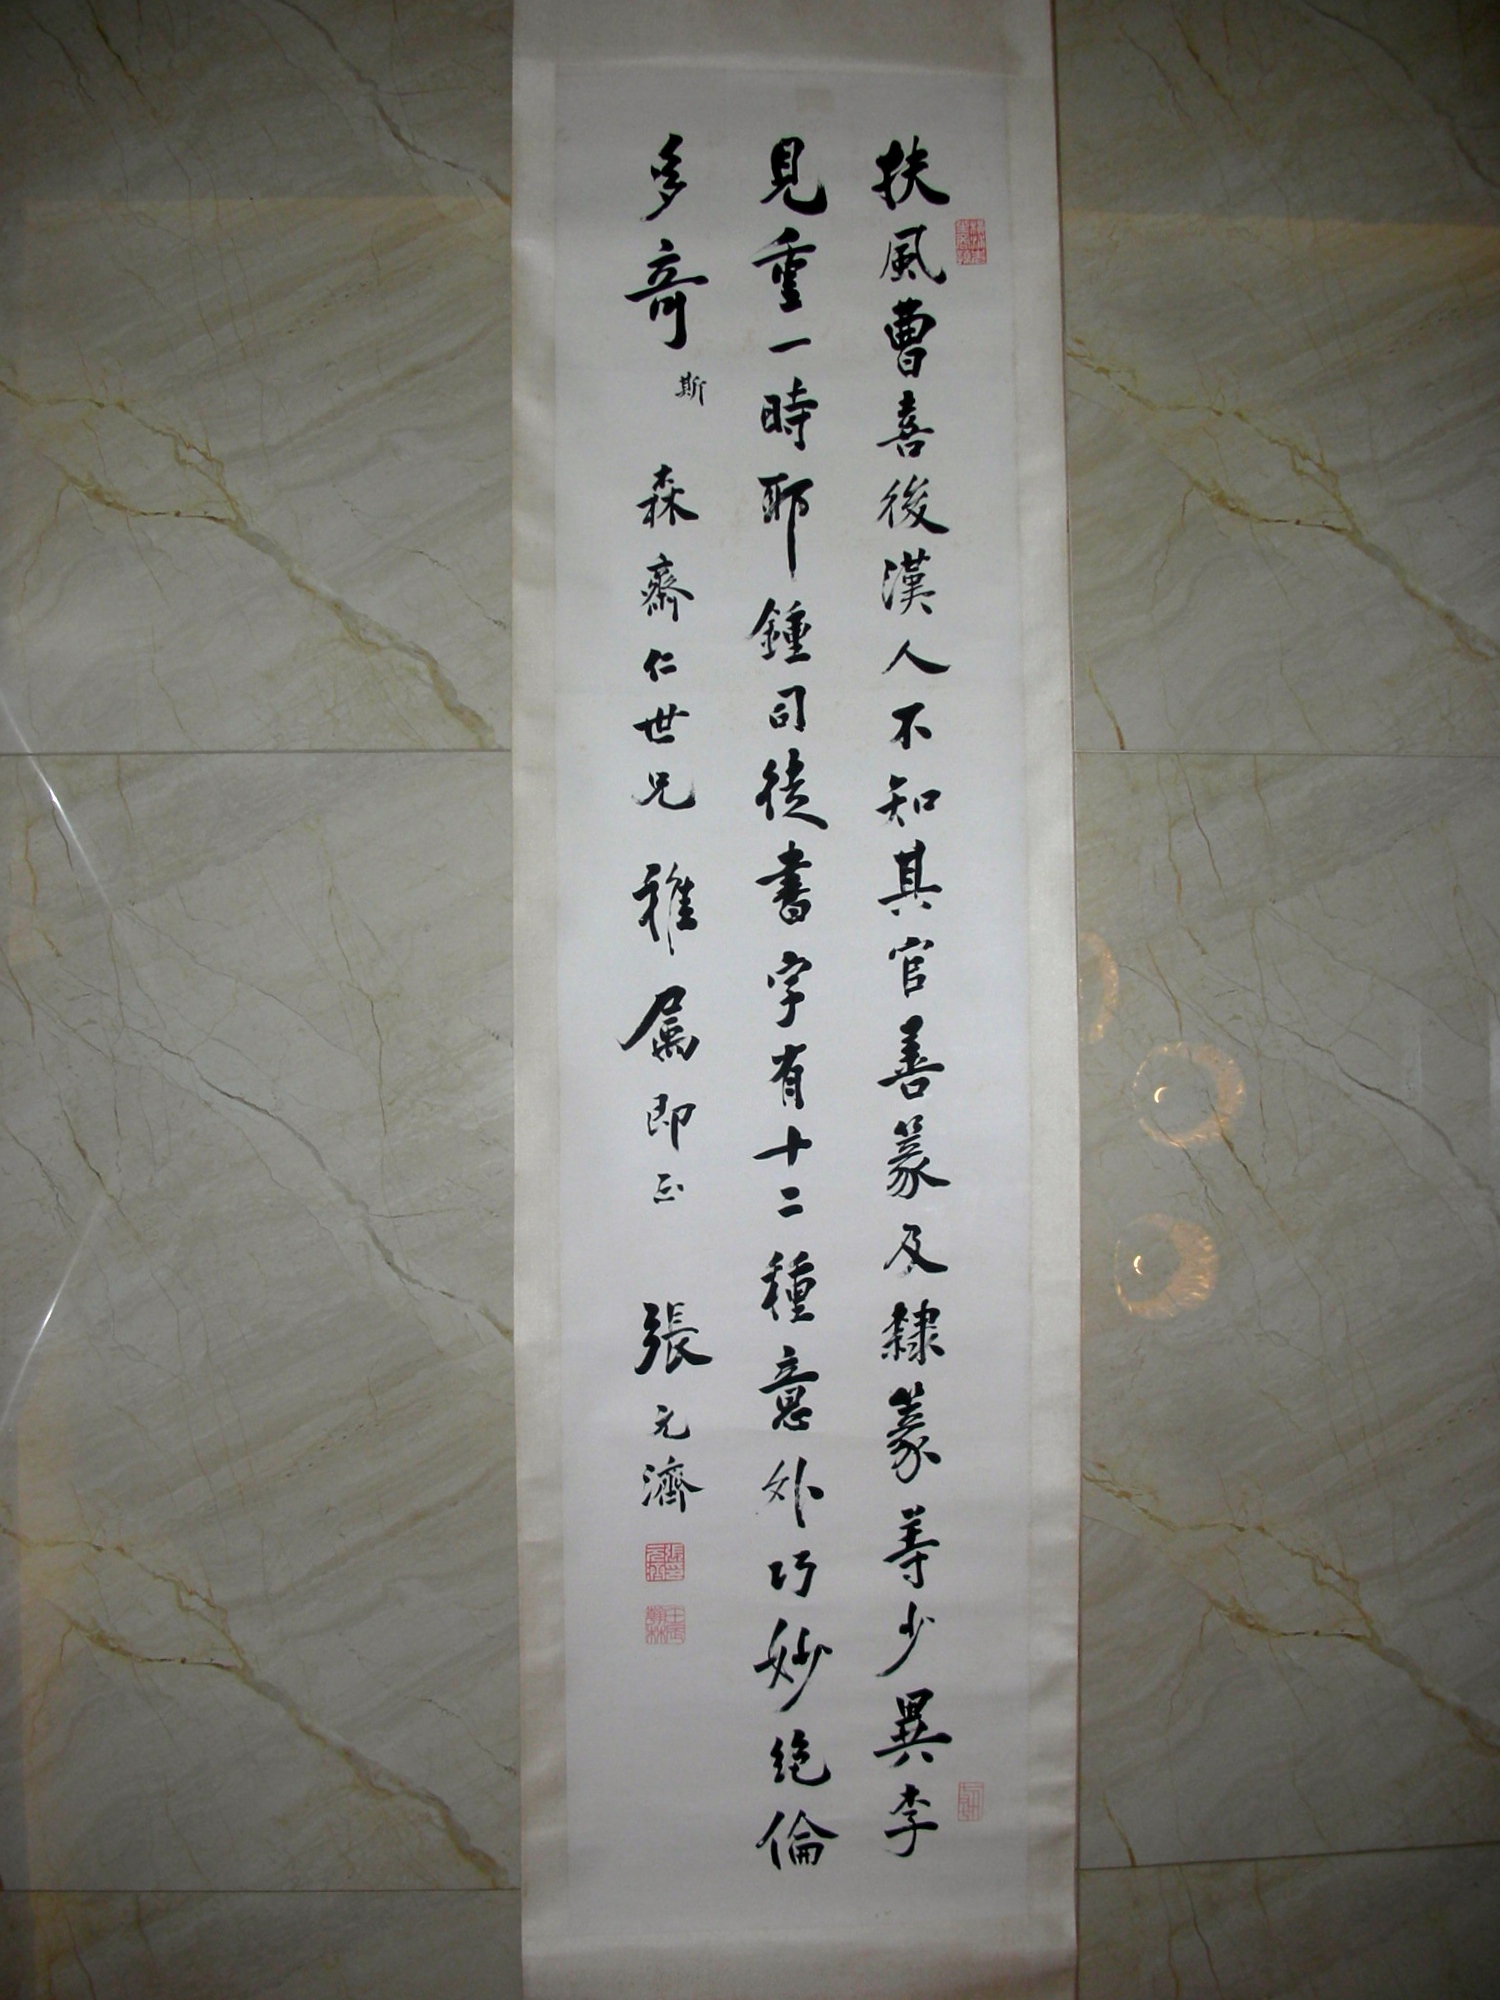 扶風曹喜後漢人不知其官善篆及隸篆等少異李
見重一時耶鍾司徒書字有十二種意外巧妙絕倫
多奇 斯 森齋仁世兄 雅屬即正 張元濟
壬辰翰林